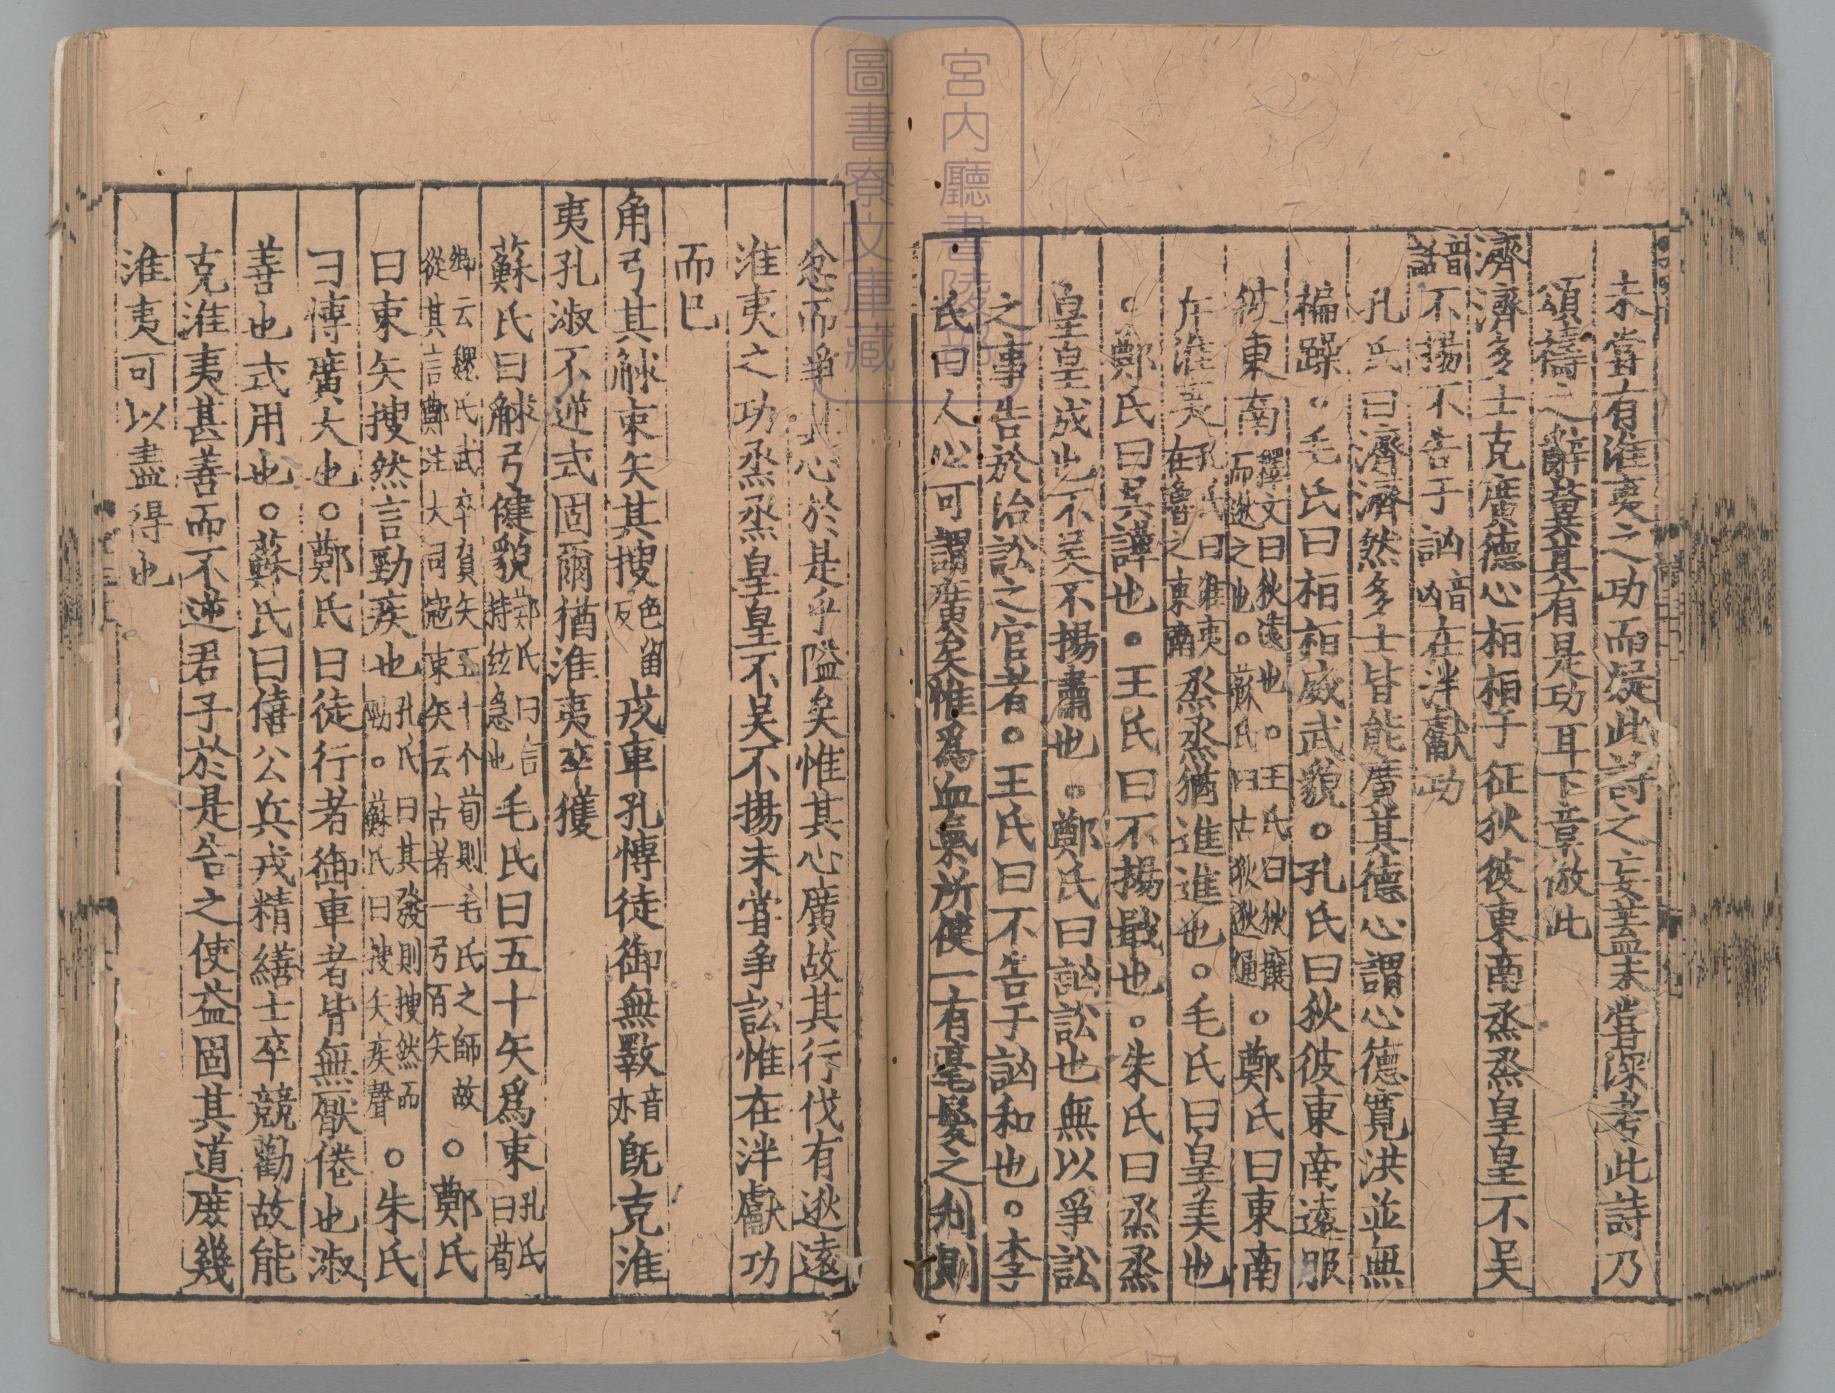 未嘗有淮夷之功而疑此詩之妄蓋未嘗深考此詩乃
頌禱之辭冀其有是功耳下章倣此
濟濟多士克廣德心桓桓于征狄彼東南烝烝皇皇不吴
音話不揚不告于訩音凶在泮獻功
孔氏曰濟濟然多士皆能廣其德心謂心德寬洪並無
褊躁。毛氏曰桓桓威武貌。孔氏曰狄彼東南遠服
彼東南釋文曰狄遠也。王氏曰狄攘而逖之也。蘇氏曰古狄逖通。鄭氏曰東南
斥淮夷孔氏曰淮夷在魯之東南烝烝猶進進也。毛氏曰皇美也
。鄭氏曰吴譁也。王氏曰不揚戢也。朱氏曰烝烝
皇皇成也不吴不揚肅也。鄭氏曰訩訟也無以爭訟
之事告於治訟之官者。王氏曰不告于訩和也。李
氏曰人心可謂廣矣惟爲血氣所使一有毫髮之利則
忿而爭其心於是乎隘矣惟其心廣故其行伐有逖遠
淮夷之功烝烝皇皇不吴不揚未嘗爭訟惟在泮獻功
而已
角弓其觩束矢其搜色留反戎車孔博徒御無斁音亦旣克淮
夷孔淑不逆式固爾猶淮夷卒獲
蘇氏曰觩弓健貌鄭氏曰言持弦急也毛氏曰五十矢爲束孔氏曰荀
卿云魏氏武卒負矢五十个荀則毛氏之師故從其言鄭注大司寇束矢云古者一弓百矢。鄭氏
曰束矢搜然言勁疾也孔氏曰其發則搜然而勁。蘇氏曰搜矢疾聲。朱氏
曰博廣大也。鄭氏曰徒行者御車者皆無厭倦也淑
善也式用也。蘇氏曰僖公兵戎精繕士卒競勸故能
克淮夷甚善而不逆君子於是告之使益固其道庶幾
淮夷可以盡得也
宮内廳書陵部
圖書寮文庫藏